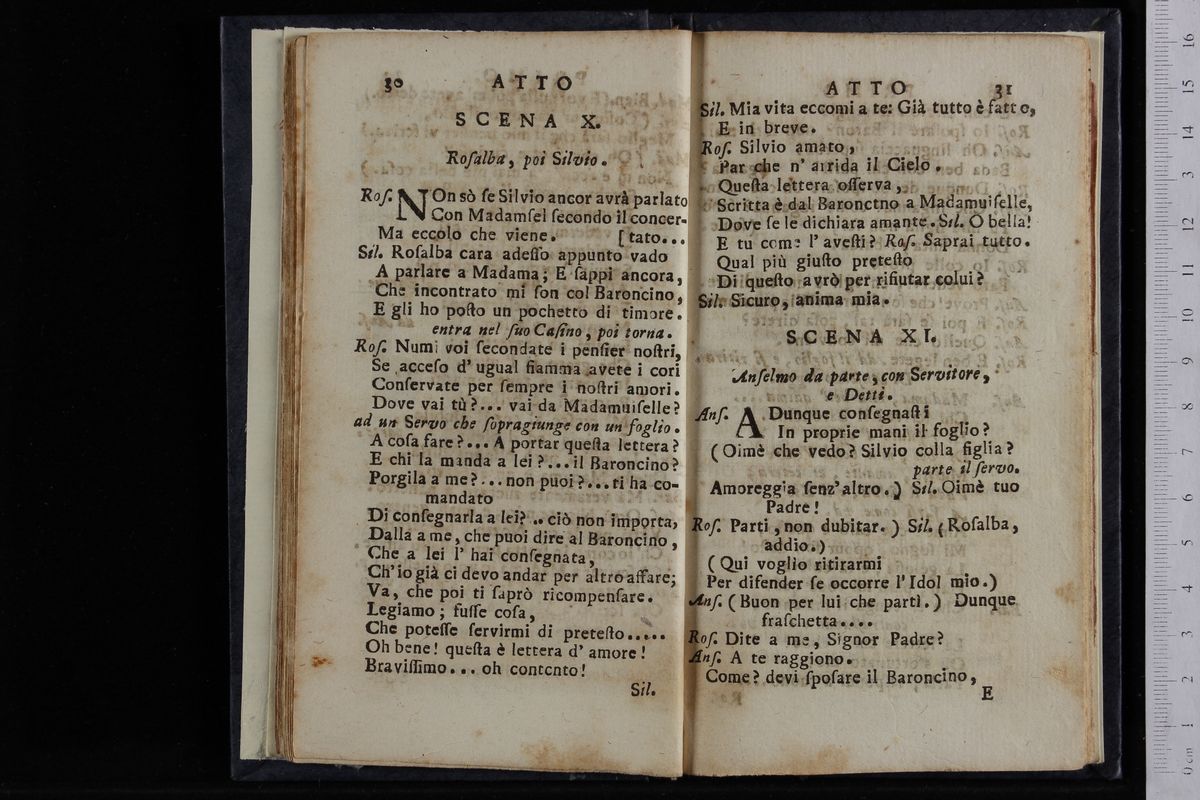 30 ATTO
SCENA X.
Roſalba, poi Silvio.
Roſ. NOn sò ſe Silvio ancor avrà parlato
Con Madamſel ſecondo il concer-
Ma eccolo che viene. [tato...
Sil. Roſalba cara adeſſo appunto vado
A parlare a Madama; E ſappi ancora,
Che incontrato mi ſon col Baroncino,
E gli ho poſto un pochetto di timore.
entra nel ſuo Caſino, poi torna.
Roſ. Numi voi ſecondate i penſier noſtri,
Se acceſo d' ugual fiamma avete i cori
Conſervate per ſempre i noſtri amori.
Dove vai tù?... vai da Madamuiſelle?
ad un Servo che ſopragiunge con un foglio.
A coſa fare?... A portar queſta lettera?
E chi la manda a lei?...il Baroncino?
Porgila a me?... non puoi?...ti ha co-
mandato
Di conſegnarla a lei? .. ciò non importa,
Dalla a me, che puoi dire al Baroncino,
Che a lei l' hai conſegnata,
Ch' io già ci devo andar per altro affare;
Va, che poi ti ſaprò ricompenſare.
Legiamo; fuſſe coſa,
Che poteſſe ſervirmi di preteſto.....
Oh bene! queſta è lettera d' amore!
Braviſſimo... oh contento!
Sil.
ATTO 31
Sil. Mia vita eccomi a te: Già tutto è fatto,
E in breve.
Roſ. Silvio amato,
Par che n' arrida il Cielo.
Queſta lettera oſſerva,
Scritta è dal Baronctno a Madamuiſelle,
Dove ſe le dichiara amante. Sil. O bella!
E tu come l' aveſti? Roſ. Saprai tutto.
Qual più giuſto preteſto
Di queſto avrò per rifiutar colui?
Sil. Sicuro, anima mia.
SCENA XI.
Anſelmo da parte, con Servitore,
e Detti.
Anſ. ADunque conſegnaſti
In proprie mani il foglio?
(Oimè che vedo? Silvio colla figlia?
parte il ſervo.
Amoreggia ſenz' altro.) Sil. Oimè tuo
Padre!
Roſ. Parti, non dubitar.) Sil. (Roſalba,
addio.)
(Qui voglio ritirarmi
Per difender ſe occorre l' Idol mio.)
Anſ. (Buon per lui che partì.) Dunque
fraſchetta....
Roſ. Dite a me, Signor Padre?
Anſ. A te raggiono.
Come? devi ſpoſare il Baroncino,
E
0 cm 1 2 3 4 5 6 7 8 9 10 11 12 13 14 15 16